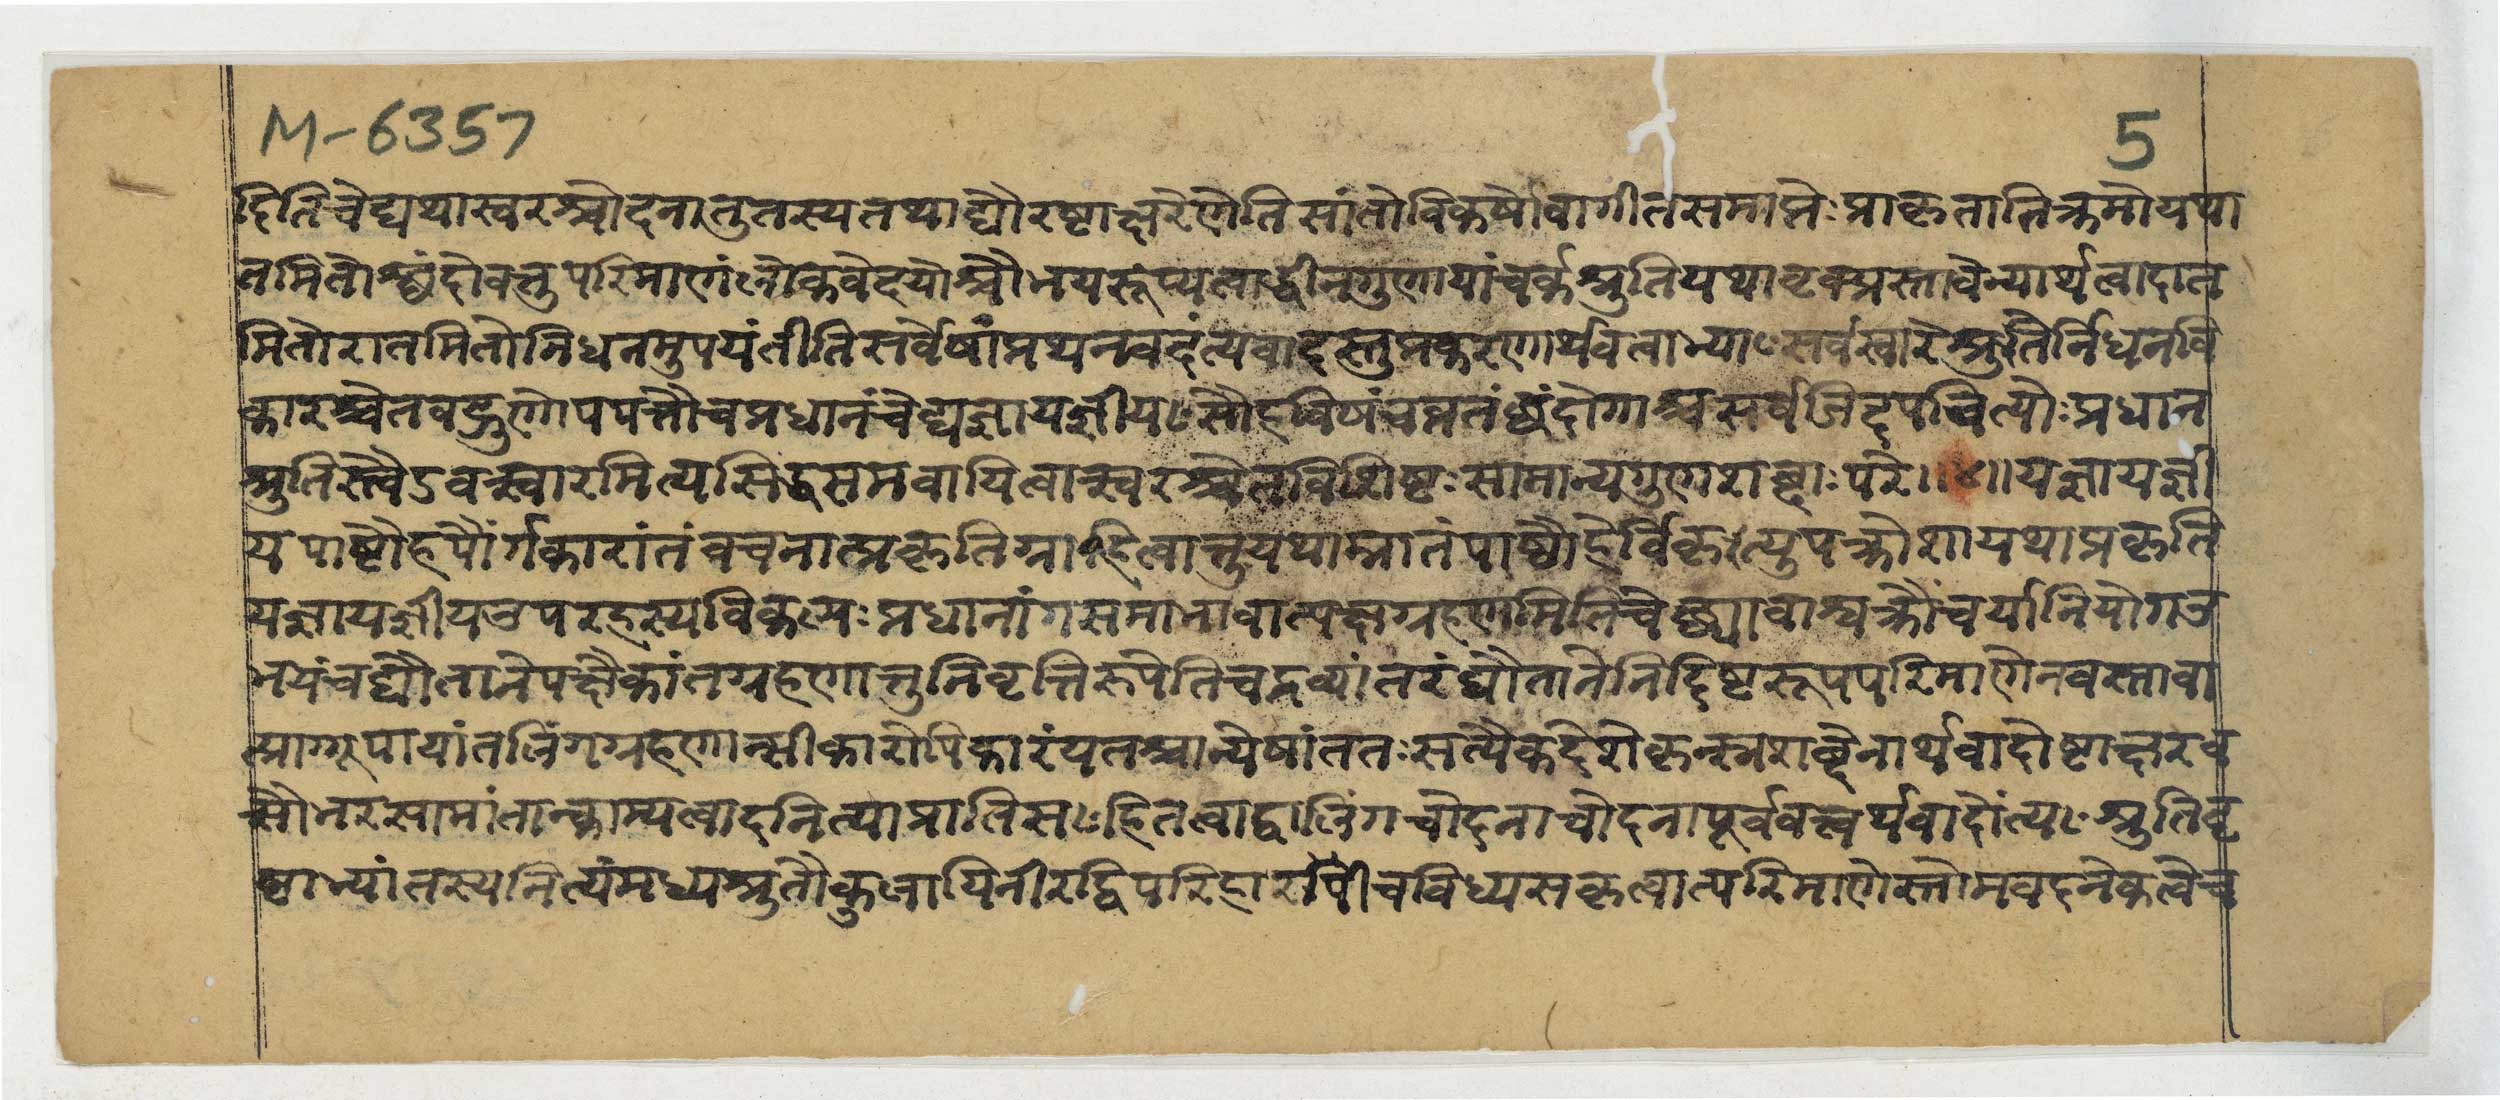 M-6357
5
दितिचेद्यथास्वरश्चोदनातुतस्यतथाद्यौरष्टाक्षरेणेतिसांतोविकर्षोवागीतसमाप्तेःप्राकृतातिक्रमोयथा
तमितोश्छंदोवत्तुपरिमाणंलोकवेदयोश्चोभयरूप्यत्वाद्धीनगुणायांचर्क्श्रुतियथावृक्प्रस्तावेन्यार्थत्वादात
मितोरातमितोनिधनमुपयंतीतिसर्वेषांप्रथनवदंत्यवादस्तुप्रकरणार्थवत्वाभ्याꣳसर्वस्वारेश्रुतेर्निधनवि
कारश्चेतवद्गुणोपपत्तौचप्रधानंचेद्यज्ञायज्ञीयꣳसौहविषंचव्रतंछंदोगाश्चसर्वजिदृपचित्योःप्रधान
श्रुतिस्त्वेऽवस्वारमित्यसिद्धसमवायित्वात्स्वरश्चेतविशिष्टःसामान्यगुणशब्दाःपरे॥४॥यज्ञायज्ञी
यपाष्टौहपौंर्गकारांतंवचनात्प्रकृतिग्रा हित्वात्तुयथाम्नातंपाष्ठौहेर्विकꣳत्युपक्रोशायथाप्रकृति
यज्ञायज्ञीयउपरहस्यविकल्पः प्रधानांगसमानावात्पक्षग्रहणमितिचेच्छ्यावाश्वक्रौंचर्यानियोगउ
भयंचद्यौतानेपक्षैकांतग्रहणात्तुनिवृत्तिरूपेतिचद्रव्यांतरंद्यौतानेनिद्दिष्टरूपपरिमाणेनवस्तावा
त्प्राग्गूपायांतलिंगग्रहणात्सीकारोपिकारंयतश्चान्येषांततःसत्यैकदेशेकृत्स्नशब्देनार्थवादोष्टाक्षरव
सोनरसामांतान्काम्यत्वादनित्याप्रातिसꣳहितत्वाद्वालिंगचोदनाचोदनापूर्ववत्त्वर्थवादोंत्यꣳश्रुतिवृ
ष्वाभ्यांतस्यनित्यंमध्यश्रुतौकुलायिनीरद्विपरिहारपिीचविध्यसकृत्वात्परिमाणेस्तोमवदनेकत्वेच